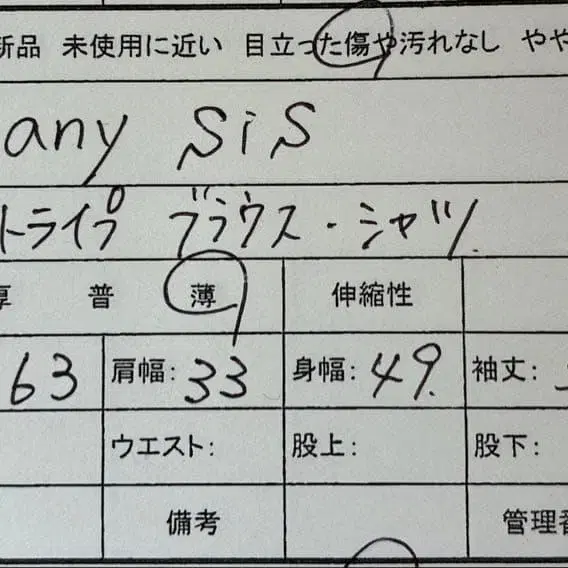 新品 未使用に近い 目立った傷や汚れなし やや
any SiS
トライプ ブラウス・シャツ
厚 普 薄 伸縮性
63 肩幅: 33 身幅: 49 袖丈:
ウエスト: 股上: 股下:
備考 管理番